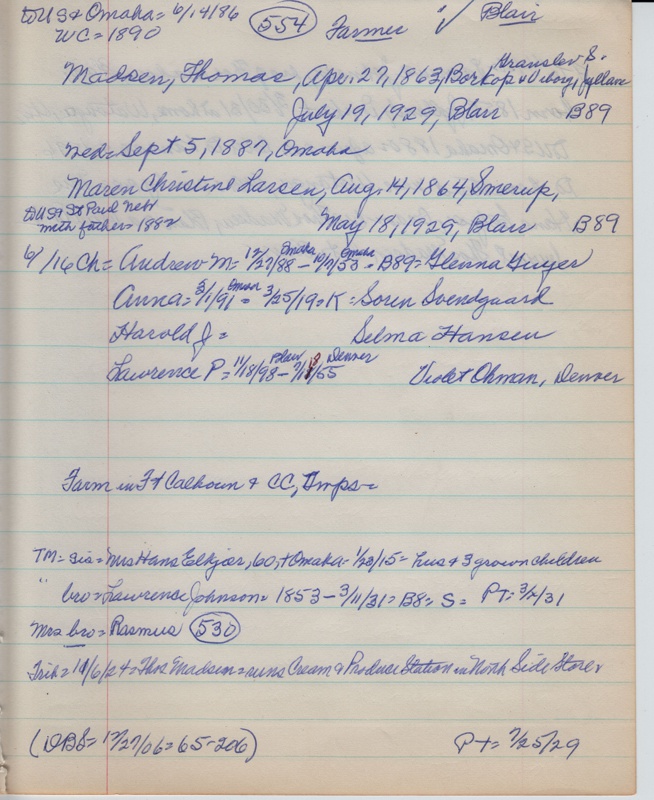 to US & Omaha = 6/14/86 554 Farmer ✓ Blair
WC = 1890
Kranslev S.
Madsen, Thomas, Apr. 27, 1863, Borkop & Viborg, Jylland
July 19, 1929, Blair B89
wed = Sept 5, 1887, Omaha
Maren Christine Larsen, Aug. 14, 1864, Smerup,
to US & St Paul Nebr
with father = 1882 May 18, 1929, Blair B89
6/16 Ch = Andrew M = 12/27/88 Omaha - 10/7/53 Omaha = B89 = Glenna Guyer
Anna = 3/1/91 Omaha = 3/25/19 = K = Soren Svendgaard
Harold J = Selma Hansen
Lawrence P = 11/18/98 Blair - 7/18/55 Denver Violet Ohman, Denver
Farm in Ft Calhoun & CC, Twps =
TM = sis = Mrs Hans Elkjar, 60, + Omaha = 1/28/15 = hus & 3 grown children
" bro = Lawrence Johnson = 1853 - 3/11/31 = B8 = S = PT = 3/2/31
Mrs bro = Rasmus 530
Trib = 11/6/24 = Thos Madsen = runs Cream & Produce Station in North Side Store
(DBS = 12/27/06 = 65-206) PT = 7/25/29